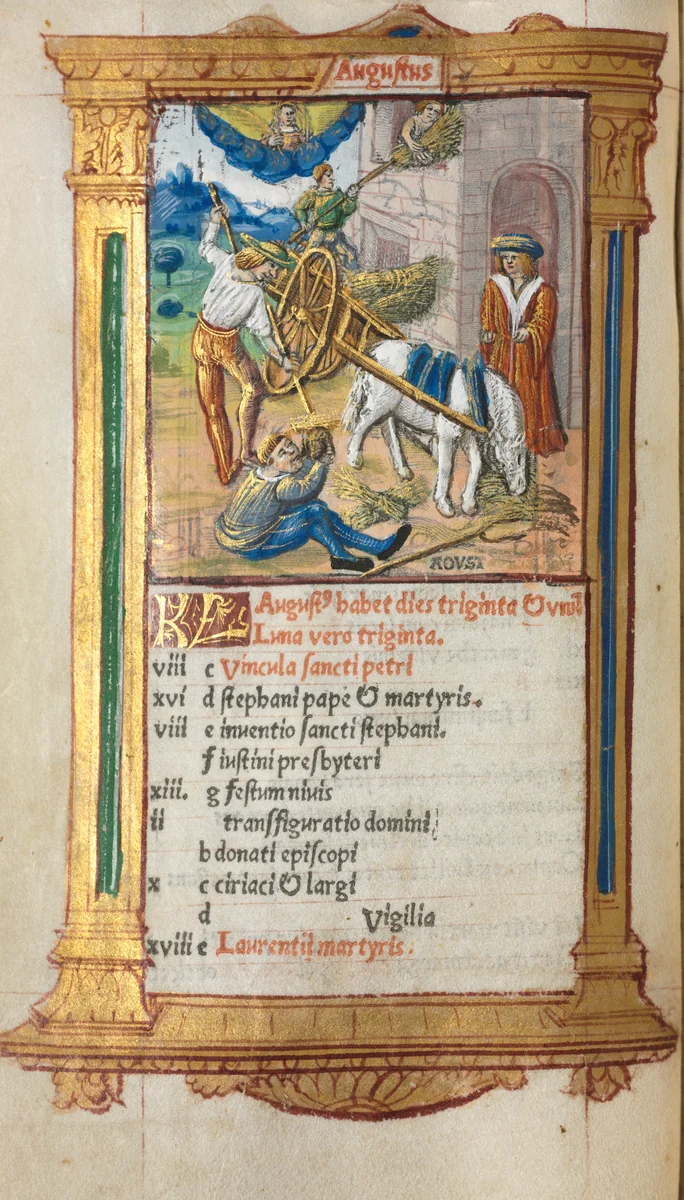 Augustus
AOVST
KL Augustꝰ habet dies triginta & vnũ
Luna vero triginta.
viii c Vincula sancti petri
xvi d stephani pape & martyris.
viii e inventio sancti stephani.
f iustini presbyteri
xiii. g festum nivis
ii transfiguratio domini
b donati episcopi
x c ciriaci & largi
d Vigilia
xviii e Laurentii martyris.